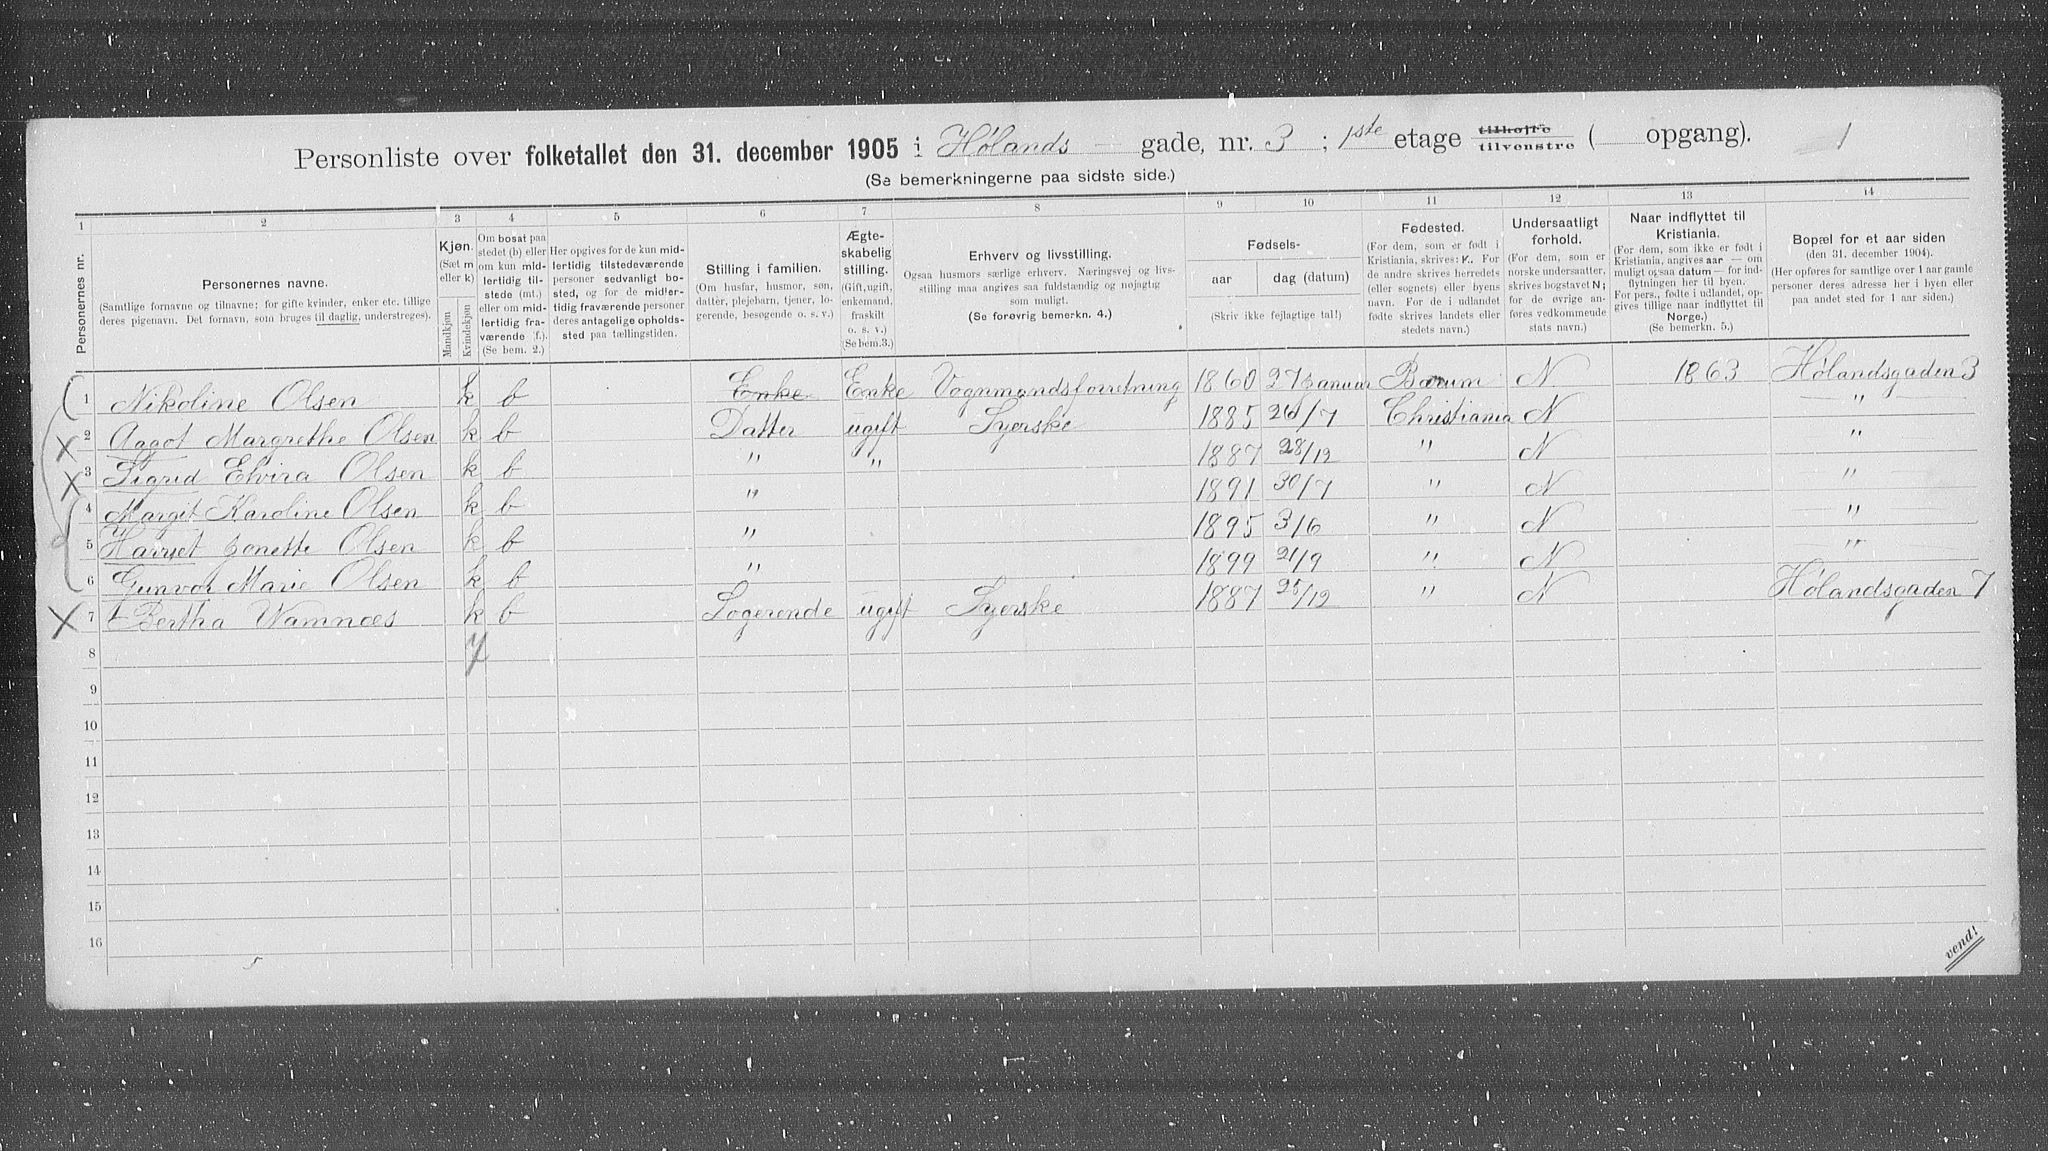 Personliste over folketallet den 31. december 1905 i Hølands gade, nr. 3 ; 1ste etage tilhøjre tilvenstre ( opgang). 1
(Se bemerkningerne paa sidste side.)
1 2 3 4 5 6 7 8 9 10 11 12 13 14
Personernes nr.
Personernes navne.
(Samtlige fornavne og tilnavne; for gifte kvinder, enker etc. tillige
deres pigenavn. Det fornavn, som bruges til daglig, understreges).
Kjøn.
(Sæt m
eller k)
Mandkjøn
Kvindekjøn
Om bosat paa
stedet (b) eller
om kun mid-
lertidig til-
stede (mt.)
eller om mid-
lertidig fra-
værende (f.).
(Se bem. 2.)
Her opgives for de kun mid-
lertidig tilstedeværende
personer sedvanlig bo-
sted, og for de midler-
tidig fraværende personer
deres antagelige opholds-
sted paa tællingstiden.
Stilling i familien.
(Om husfar, husmor, søn,
datter, plejebarn, tjener, lo-
gerende, besøgende o. s. v.)
Ægte-
skabelig
stilling.
(Gift, ugift,
enkemand,
fraskilt
o. s. v.)
(Se bem. 3.)
Erhverv og livsstilling.
Ogsaa husmors særlige erhverv. Næringsvej og livs-
stilling maa angives saa fuldstændig og nøjagtig
som muligt.
(Se forøvrig bemerkn. 4.)
Fødsels-
aar dag (datum)
(Skriv ikke fejlagtige tal!)
Fødested.
(For dem, som er født i
Kristiania, skrives: K. For
de andre skrives herredets
(eller sognets) eller byens
navn. For de i udlandet
fødte skrives landets eller
stedets navn.)
Undersaatligt
forhold.
(For dem, som er
norske undersaatter,
skrives bogstavet N;
for de øvrige an-
føres vedkommende
stats navn.)
Naar indflyttet til
Kristiania.
(For dem, som ikke er født i
Kristiania, angives aar – om
muligt ogsaa datum – for ind-
flytningen her til byen.
For pers., fødte i udlandet, op-
gives tillige naar indflyttet til
Norge.)
(Se bemerkn. 5.)
Bopæl for et aar siden
(den 31. december 1904).
(Her opføres for samtlige over 1 aar gamle
personer deres adresse her i byen eller
paa andet sted for 1 aar siden.)
1 Nikoline Olsen k b Enke Enke Vognmandsforretning 1860 27 Januar Bærum N 1863 Hølandsgaden 3
2 Aagot Margrethe Olsen k b Datter ugift Syerske 1885 26/7 Christiania N "
3 Sigrid Elvira Olsen k b " " 1887 28/12 " N "
4 Margit Karoline Olsen k b " 1891 30/7 " N "
5 Harriet Janette Olsen k b " 1895 3/6 " N "
6 Gunvor Marie Olsen k b " 1899 21/9 " N "
7 Bertha Wamnæs k b Logerende ugift Syerske 1887 25/12 " N Hølandsgaden 7
8 7
9
10
11
12
13
14
15
16
5
vend!